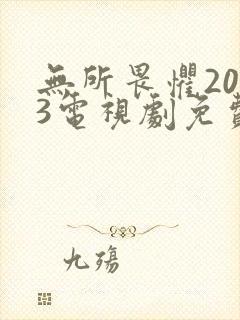 無所畏懼20
3電視劇免費
九殤